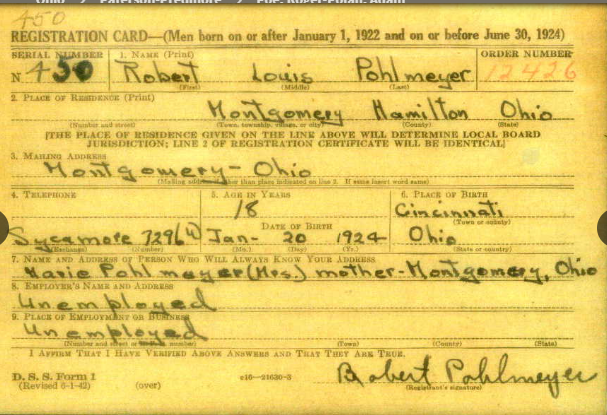 Ohio > Paterson-Predmore > Poe, Robert-Polan, Adam
450
REGISTRATION CARD—(Men born on or after January 1, 1922 and on or before June 30, 1924)
SERIAL NUMBER 1. NAME (Print) ORDER NUMBER
N. 450 Robert Louis Pohlmeyer 12426
(First) (Middle) (Last)
2. PLACE OF RESIDENCE (Print)
Montgomery Hamilton Ohio
(Number and street) (Town, township, village, or city) (County) (State)
[THE PLACE OF RESIDENCE GIVEN ON THE LINE ABOVE WILL DETERMINE LOCAL BOARD
JURISDICTION; LINE 2 OF REGISTRATION CERTIFICATE WILL BE IDENTICAL]
3. MAILING ADDRESS
Montgomery- Ohio
(Mailing address other than place indicated on line 2. If same insert word same)
4. TELEPHONE 5. AGE IN YEARS 6. PLACE OF BIRTH
18 Cincinnati
DATE OF BIRTH (Town or county)
Sycamore 7296W Jan- 20 1924 Ohio
(Exchange) (Number) (Mo.) (Day) (Yr.) (State or country)
7. NAME AND ADDRESS OF PERSON WHO WILL ALWAYS KNOW YOUR ADDRESS
Marie Pohlmeyer (Mrs) mother-Montgomery, Ohio
8. EMPLOYER'S NAME AND ADDRESS
Unemployed
9. PLACE OF EMPLOYMENT OR BUSINESS
Unemployed
(Number and street or R. F. D. number) (Town) (County) (State)
I AFFIRM THAT I HAVE VERIFIED ABOVE ANSWERS AND THAT THEY ARE TRUE.
D. S. S. Form 1
(Revised 6-1-42) (over) 16—21630-2 Robert Pohlmeyer
(Registrant's signature)